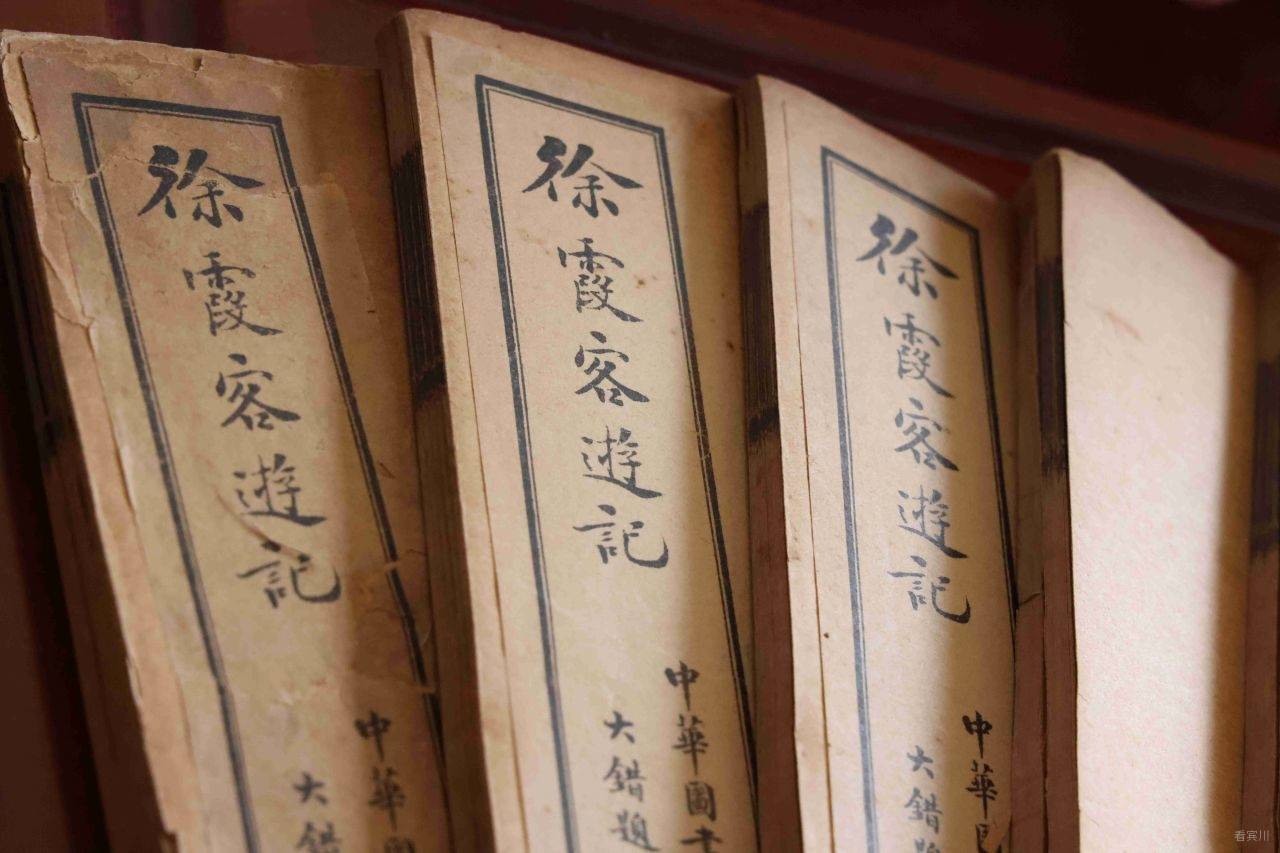 徐霞客遊記
中華圖
大錯
徐霞客遊記
中華圖書
大錯題
徐霞客遊記
中華
大錯題
看宾川